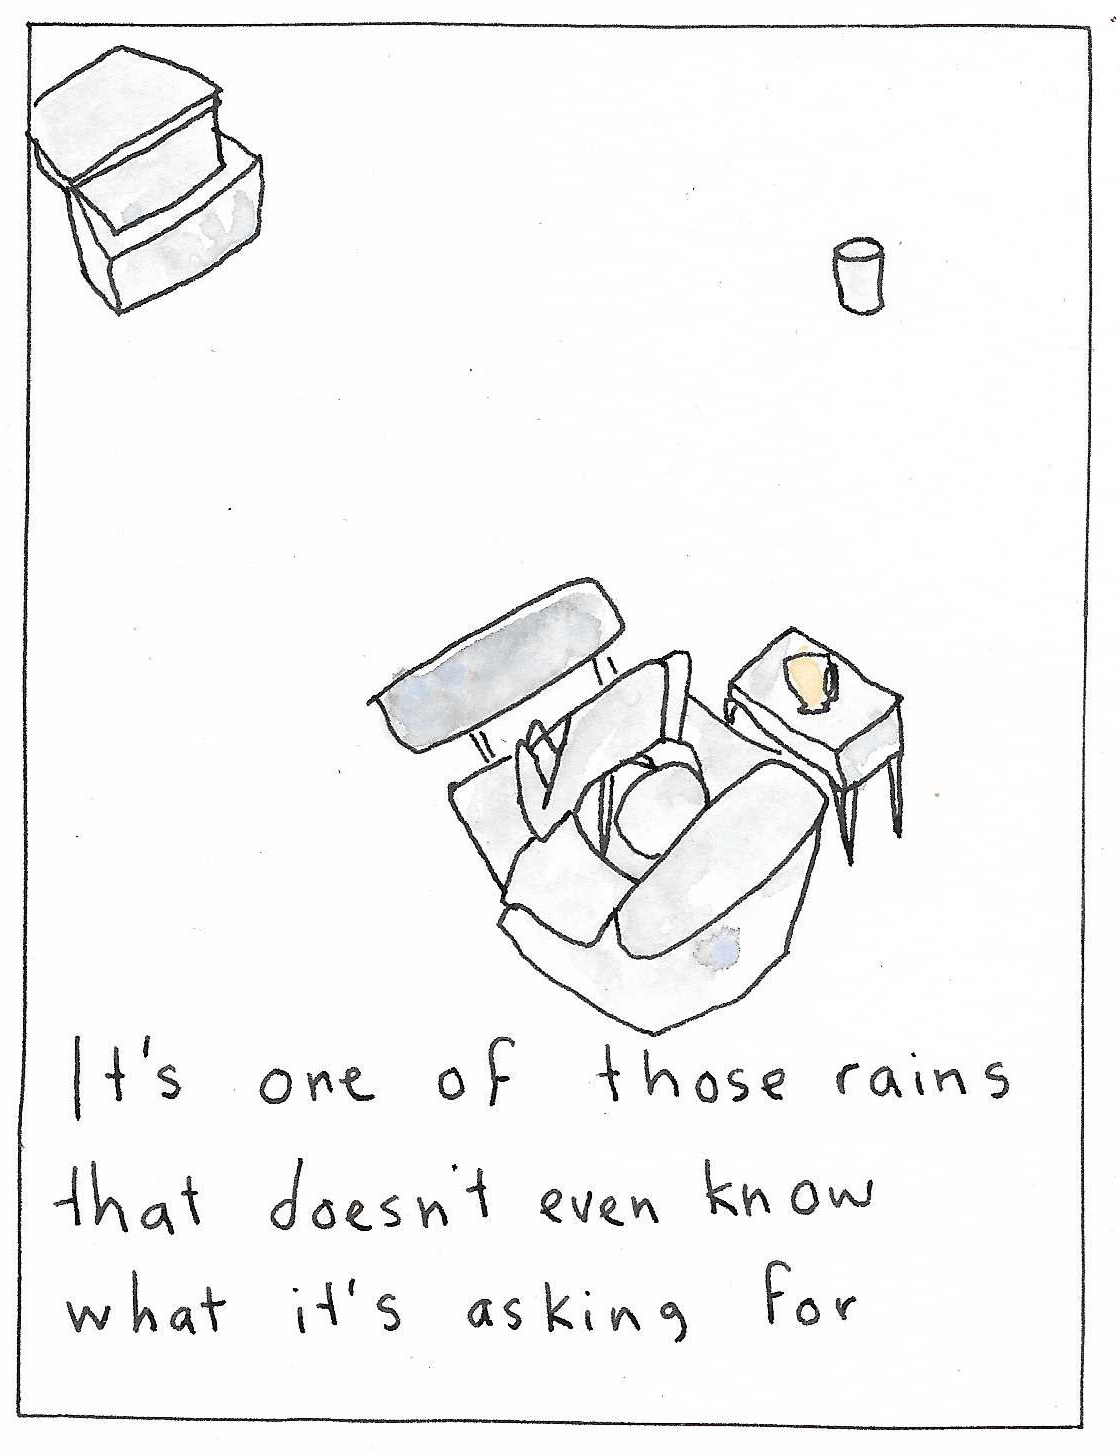 It's one of those rains
that doesn't even know
what it's asking for